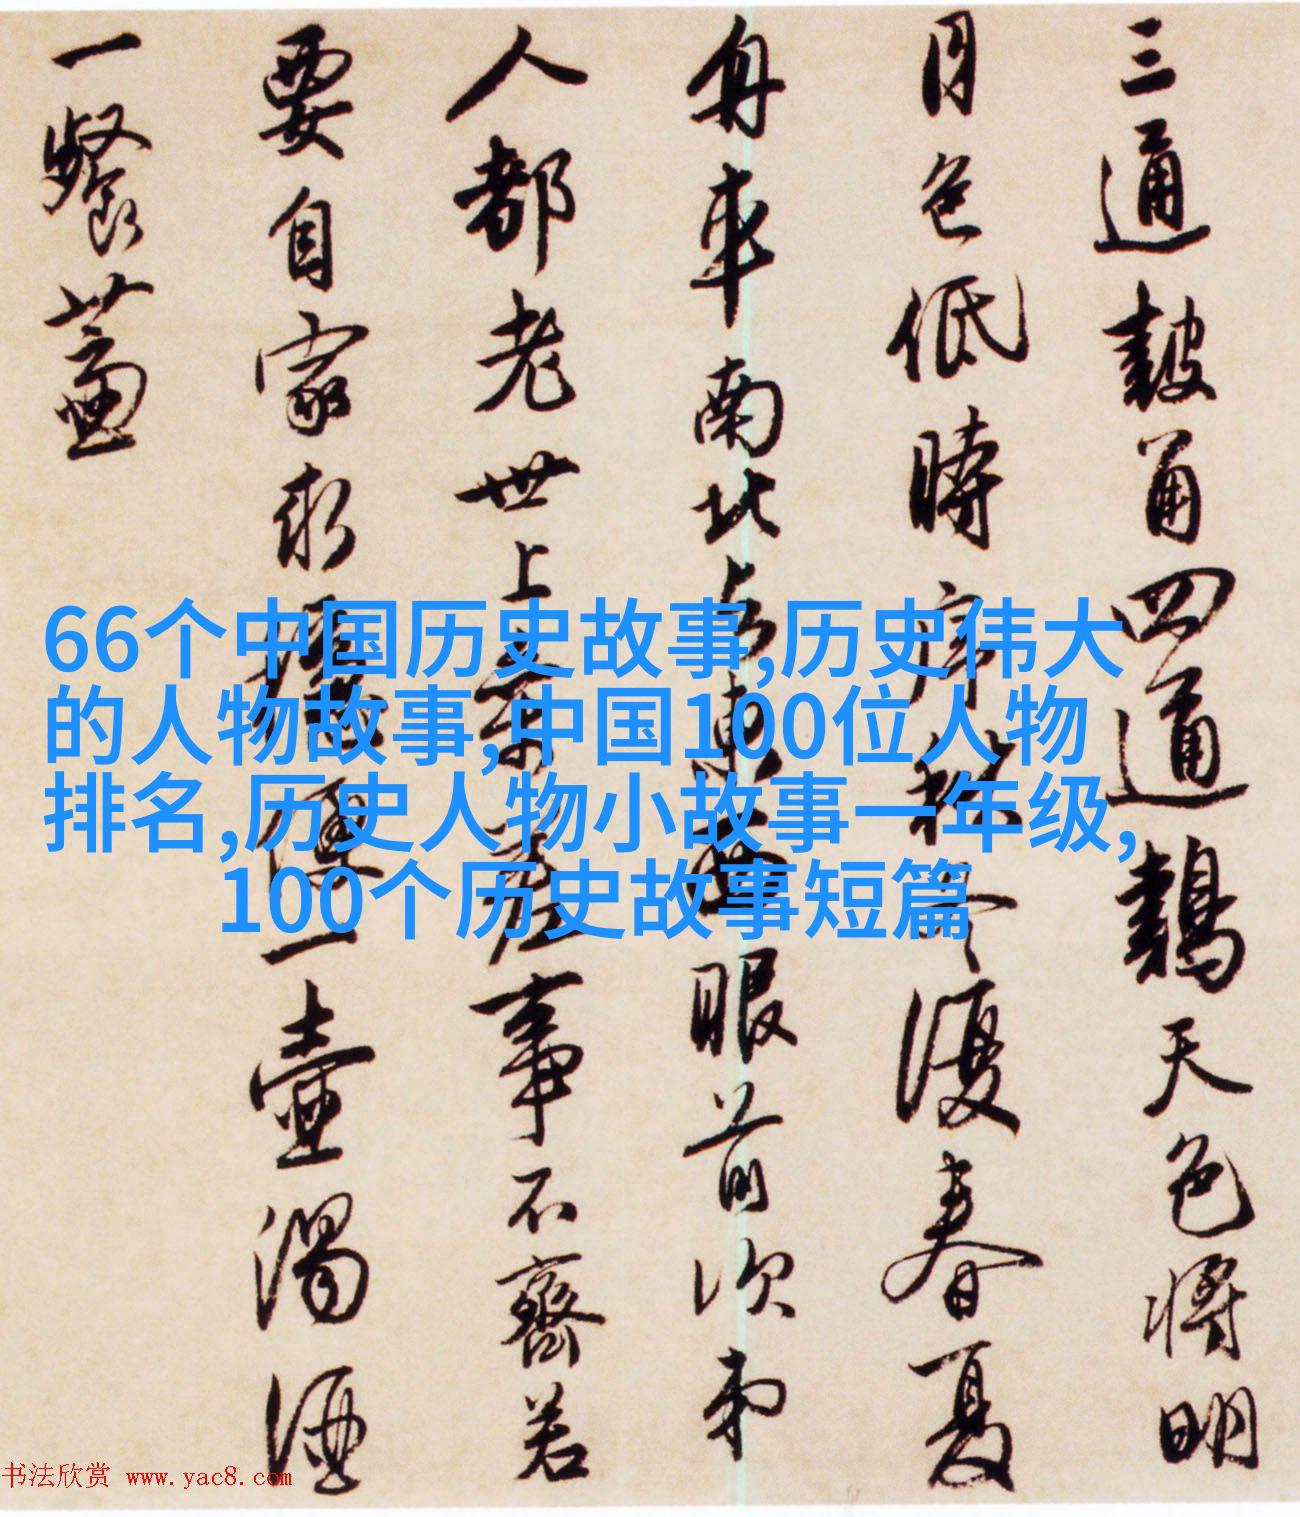 三通鼓角四通鷄天色將明
月色低時序秋冬復春夏
舟車南北与東西眼前次第
人都老世上參差事不齊若
要自家求穩便一壺濁酒
一餐虀
66个中国历史故事,历史伟大
的人物故事,中国100位人物
排名,历史人物小故事一年级,
100个历史故事短篇
书法欣赏 www.yac8.com